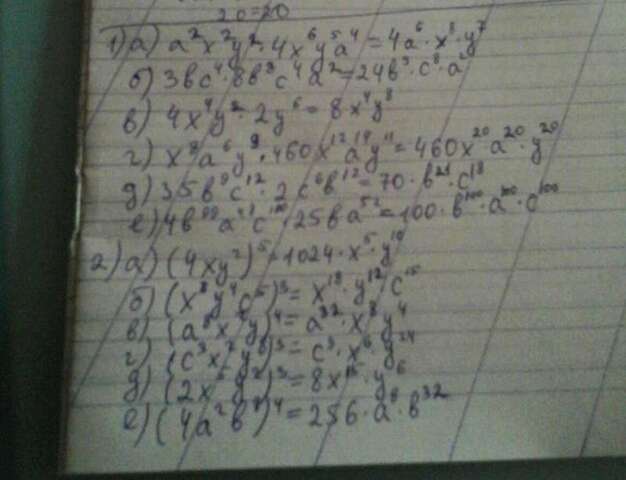 20=20
1) а) a²x²y²·4x⁶y⁵a⁴=4a⁶·x⁸·y⁷
б) 3вc⁴·8в³c⁴a²=24в³·c⁸·a²
в) 4x⁴y²·2y⁶=8x⁴y⁸
г) x⁸a⁶y⁹·460x¹²a¹⁴y¹¹=460x²⁰a²⁰·y²⁰
д) 35в⁹c¹²·2c⁶в¹²=70·в²¹·c¹⁸
е) 4в⁹⁹a⁴⁸c¹⁰⁰·25вa⁵²=100·в¹⁰⁰·a¹⁰⁰·c¹⁰⁰
2) а) (4xy²)⁵=1024·x⁵·y¹⁰
б) (x⁸y⁴c⁵)³=x¹⁸·y¹²c¹⁵
в) (a⁸x²y)⁴=a³²·x⁸y⁴
г) (c³x²y⁸)³=c³·x⁶·y²⁴
д) (2x⁵y²)³=8x¹⁵·y⁶
е) (4a²в⁸)⁴=256·a⁸·в³²